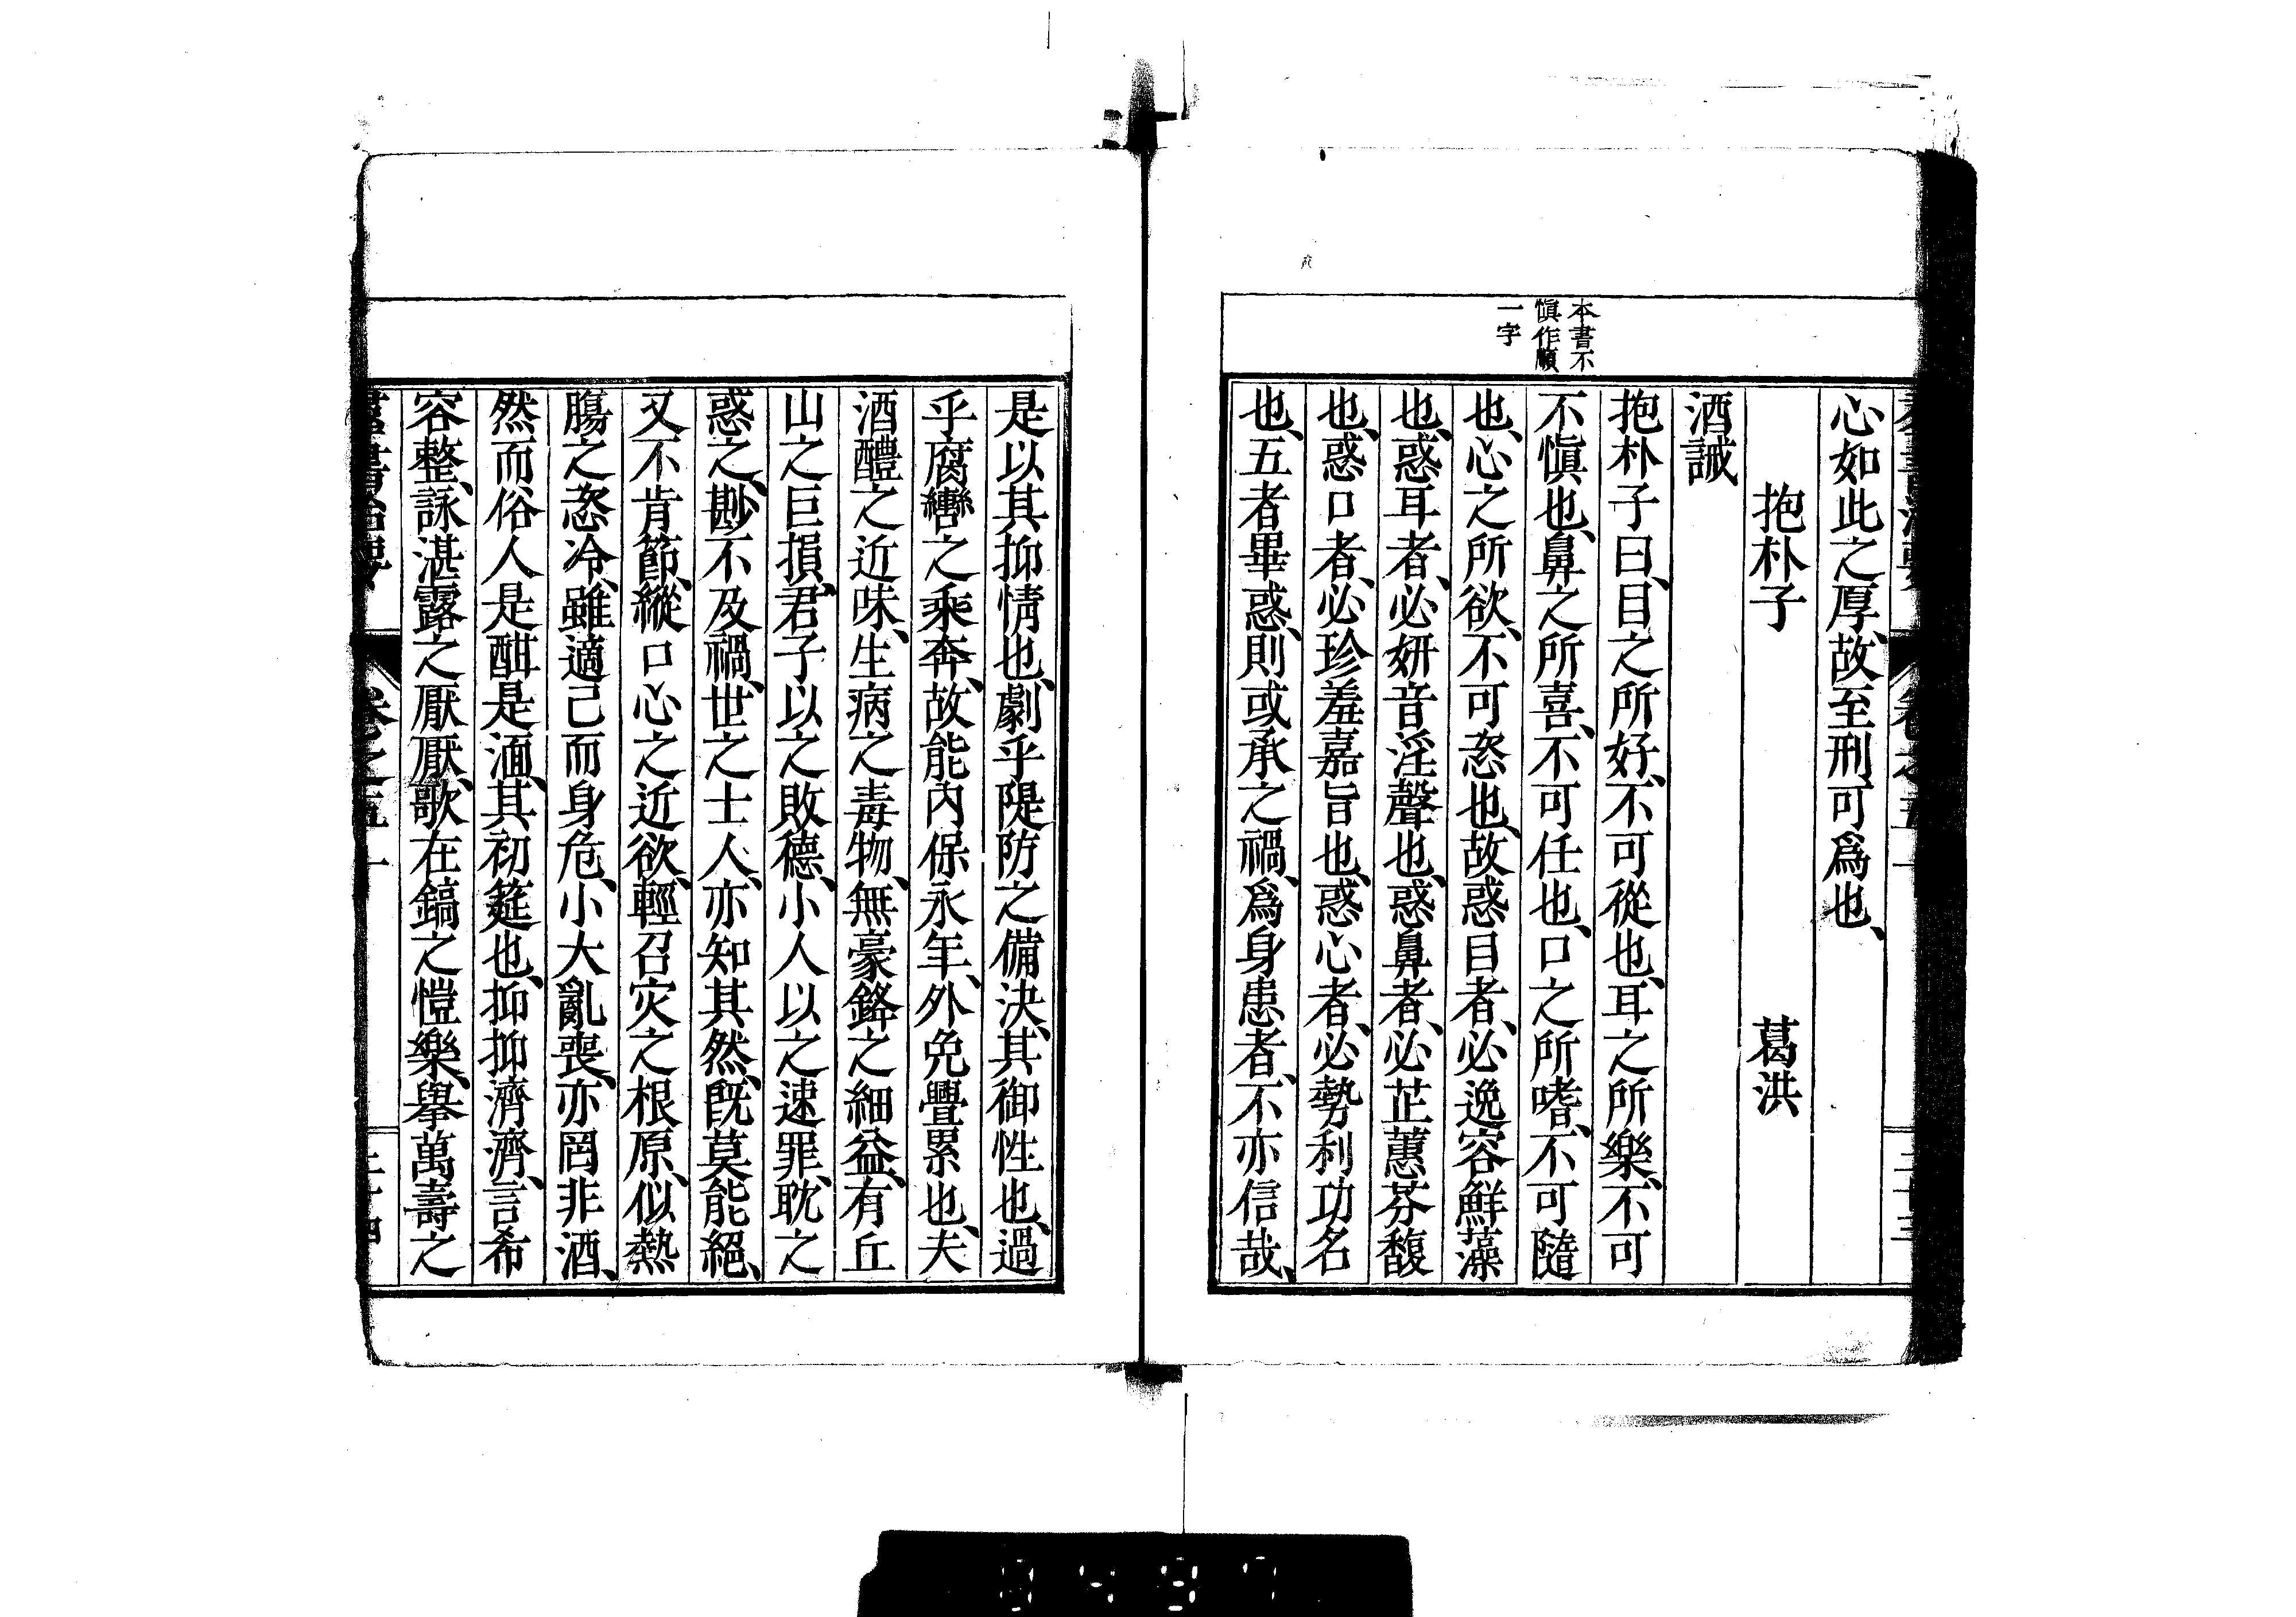 本書不
慎作順
一字
心如此之厚、故至刑可爲也、
抱朴子 葛洪
酒誡
抱朴子曰、目之所好、不可從也、耳之所樂、不可
不愼也、鼻之所喜、不可任也、口之所嗜、不可隨
也、心之所欲、不可恣也、故惑目者、必逸容鮮藻
也、惑耳者、必妍音淫聲也、惑鼻者、必芷蕙芬馥
也、惑口者、必珍羞嘉旨也、惑心者、必勢利功名
也、五者畢惑、則或承之禍、爲身患者、不亦信哉、
是以其抑情也、劇乎隄防之備決、其御性也、過
乎腐轡之乘奔、故能內保永年、外免釁累也、夫
酒醴之近味、生病之毒物、無豪鋒之細益、有丘
山之巨損、君子以之敗德、小人以之速罪、耽之
惑之、尠不及禍、世之士人、亦知其然、旣莫能絕、
又不肯節、縱口心之近欲、輕召灾之根原、似熱
腸之恣冷、雖適己而身危、小大亂喪、亦罔非酒、
然而俗人是酣是湎、其初筵也、抑抑濟濟、言希
容整、詠湛露之厭厭、歌在鎬之愷樂、擧萬壽之
群書治要 卷之五十